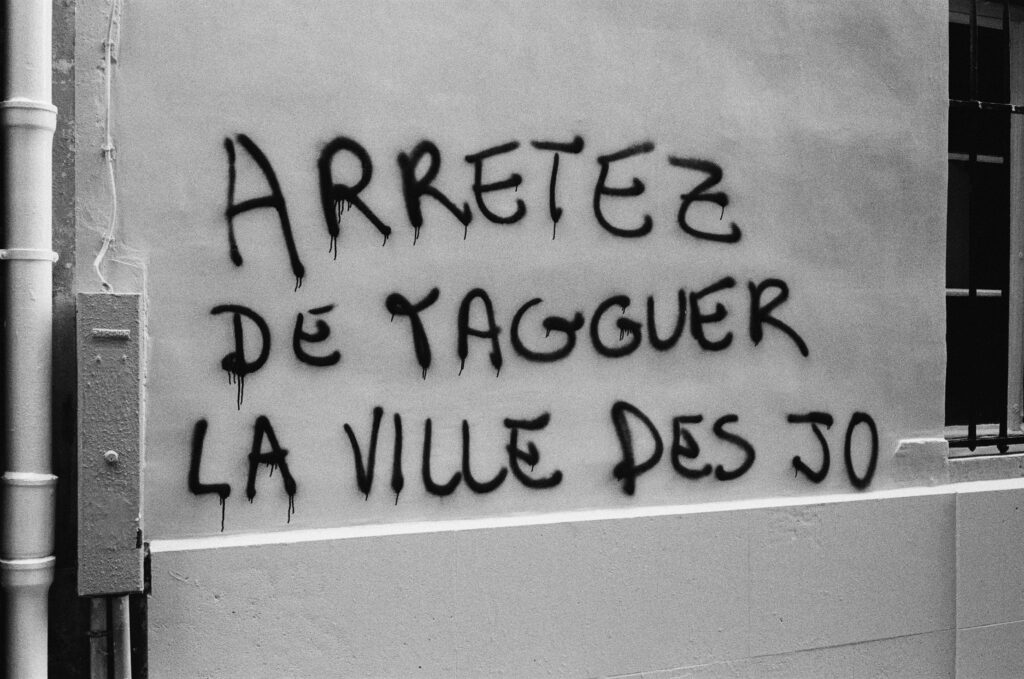 ARRETEZ
DE TAGGUER
LA VILLE DES JO